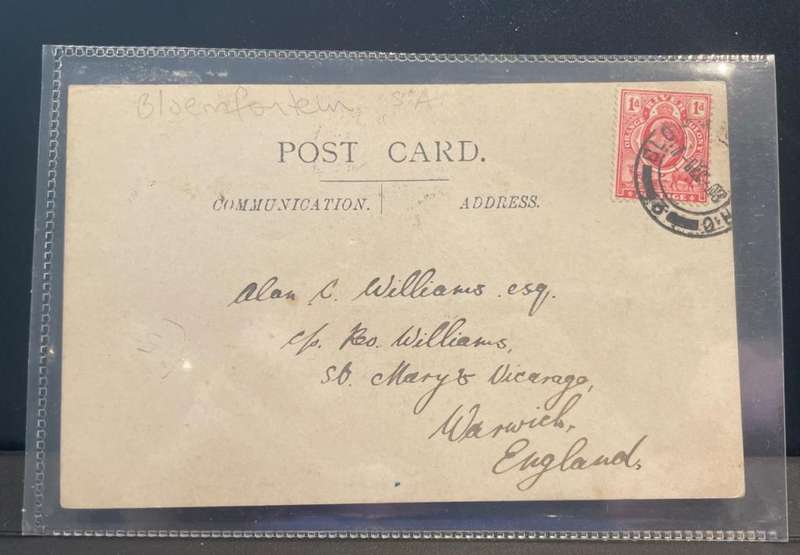 Bloemfontein S.A
POST CARD.
COMMUNICATION. ADDRESS.
1d 1d
ORANGE RIVER COLONY
Alan C. Williams. esq.
c/o. Rev. Williams,
St. Mary's Vicarage,
Warwich,
England.